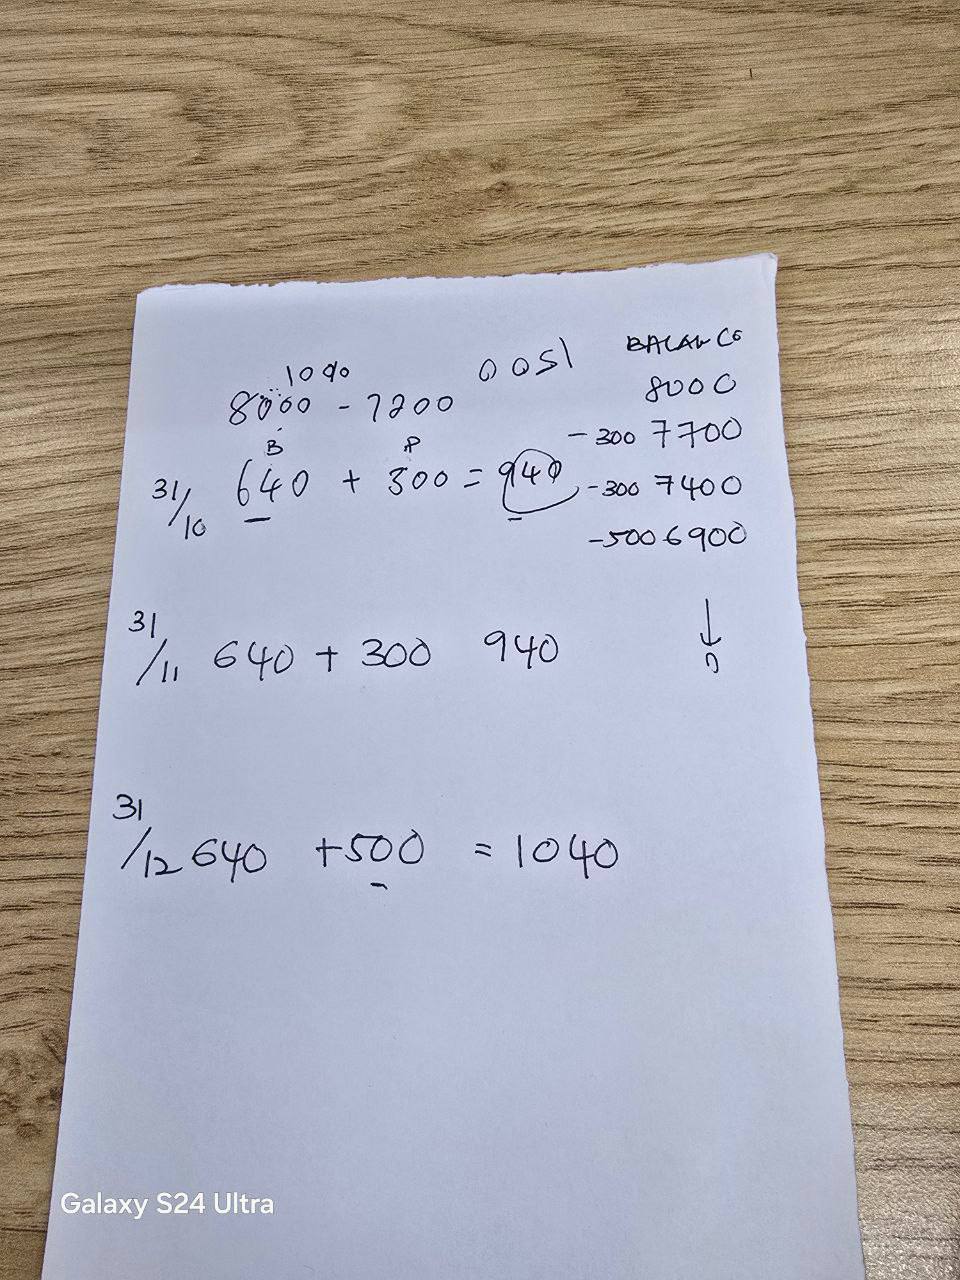 10%
0051
BALANCE
8000 - 7200
8000
B P
-300 7700
31/10 640 + 300 = 940
-300 7400
-500 6900
31/11 640 + 300 940
↓
0
31/12 640 +500 = 1040
Galaxy S24 Ultra